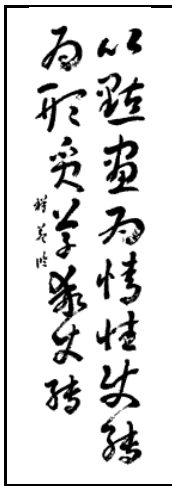 以點畫為情性使轉
為形質草乖使轉